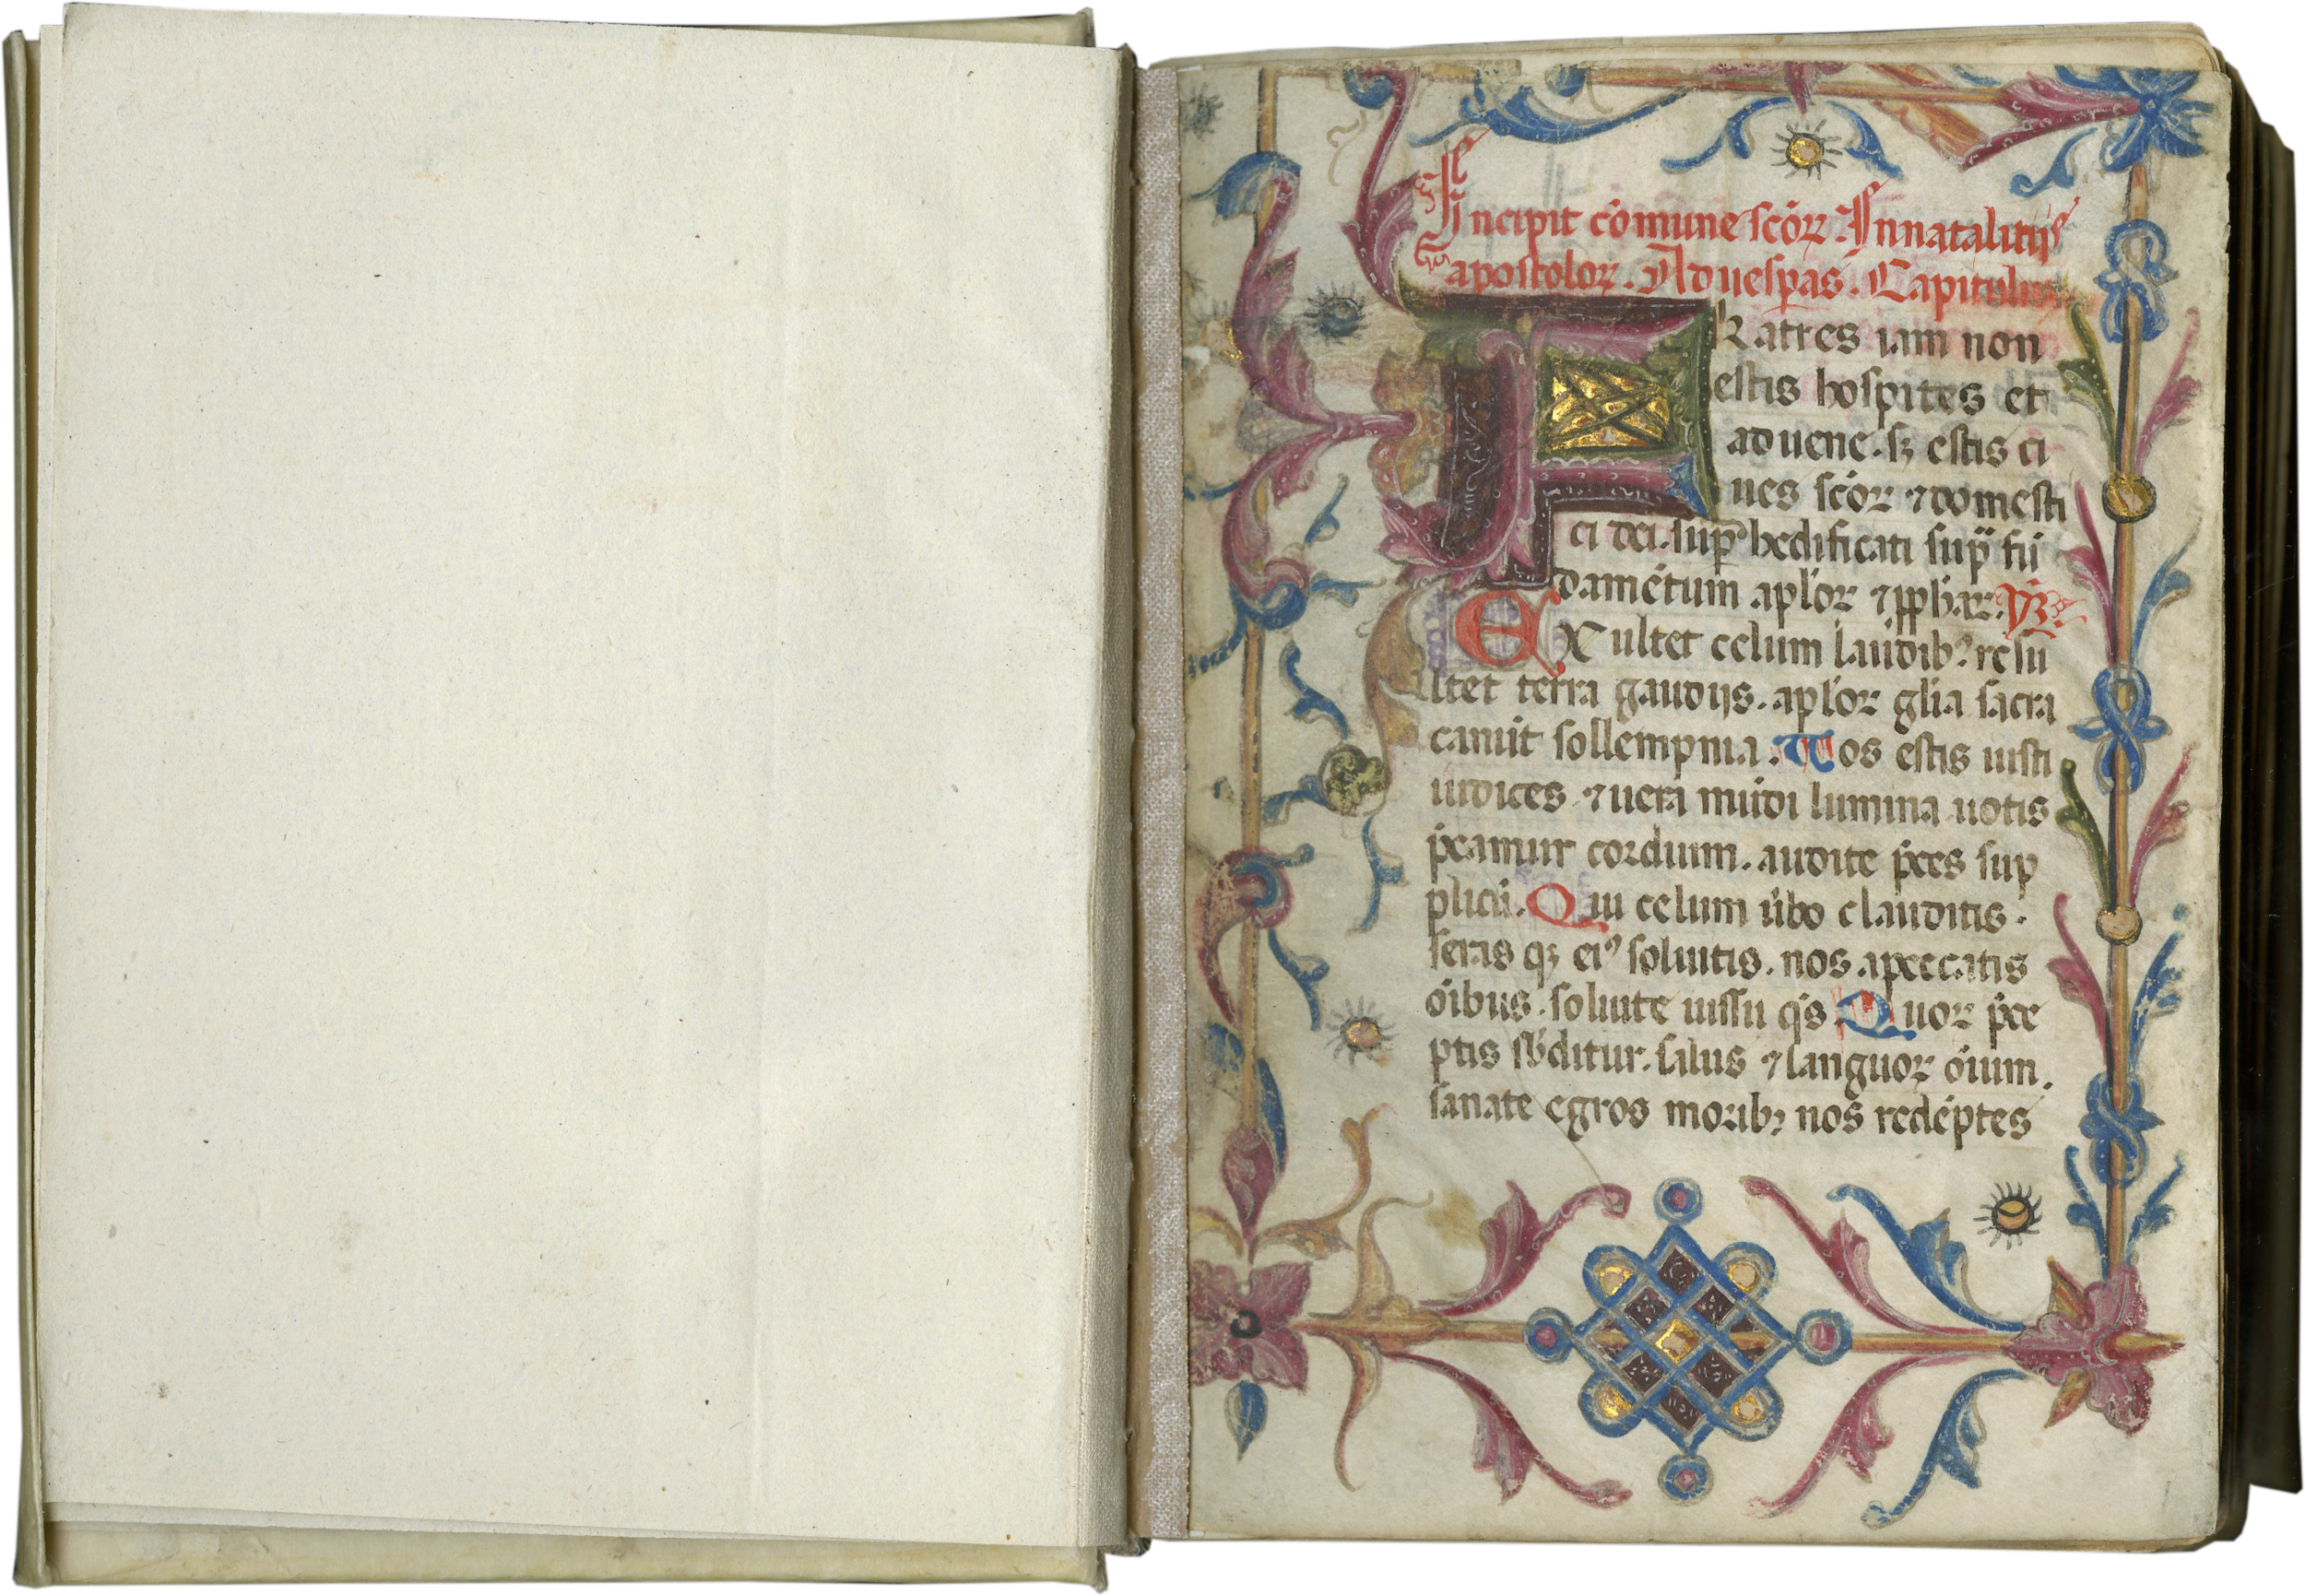 Incipit cōmune scōꝝ. In natalitiis
apostoloꝝ. Ad uesꝑas. Capitulū
FRatres iam non
estis hospites et
aduene. sꝫ estis ci
ues scōꝝ ⁊ domesti
ci dei. suꝑ hedificati sup̄ fū
damētum apl'oꝝ ⁊ ꝓphaꝝ. ym̄.
EXultet celum laudibꝰ resu
ltet terra gaudijs. apl'oꝝ gl'ia sacra
canūt sollempnia. Uos estis iusti
iudices ⁊ uera mūdi lumina uotis
p̄camur cordium. audite p̄ces sup
plicū. Qui celum ūbo clauditis.
seras qꝫ eiꝰ soluitis. nos apeccatis
oībus. soluite iussu qs̄ Quoꝝ p̄ce
ptis sb̄ditur. salus ⁊ languor oīum.
sanate egros moribꝫ nos redēptes